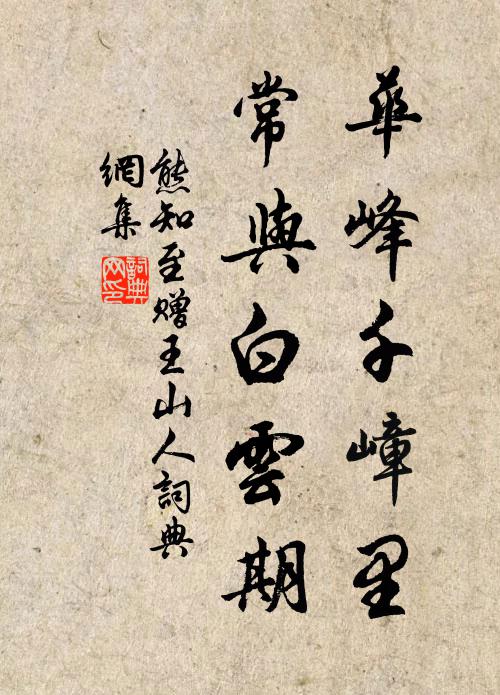 華峰千嶂里
常與白雲期
熊知至贈王山人詞典
網集
詞典
网印